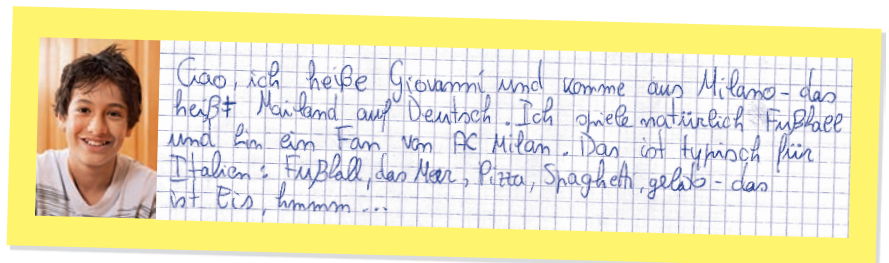 Ciao, ich heiße Giovanni und komme aus Milano - das
heißt Mailand auf Deutsch. Ich spiele natürlich Fußball
und bin ein Fan von AC Milan. Das ist typisch für
Italien: Fußball, das Meer, Pizza, Spaghetti, gelato - das
ist Eis, hmmm...